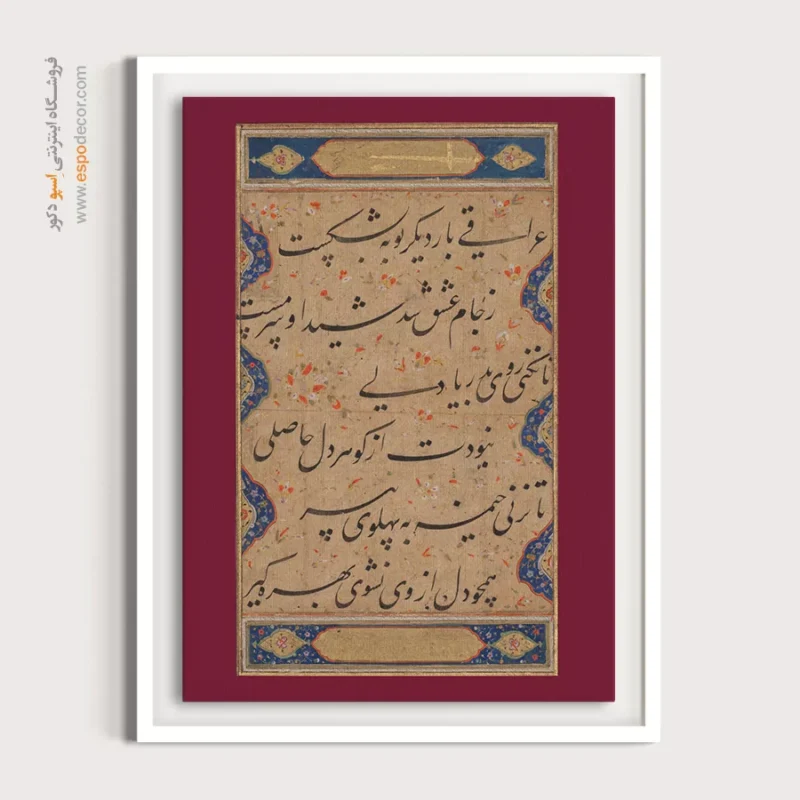 فروشگاه اینترنتی اِسپو دکور
www.espodecor.com
عراقی بار دیگر توبه بشکست
ز جام عشق شد شیدا و سرمست
تا نکنی روی بدریا دلی
نبودت از کوهر دل حاصلی
تا نزنی خیمه به پهلوی پیر
همچو دل از وی نشوی بهره گیر